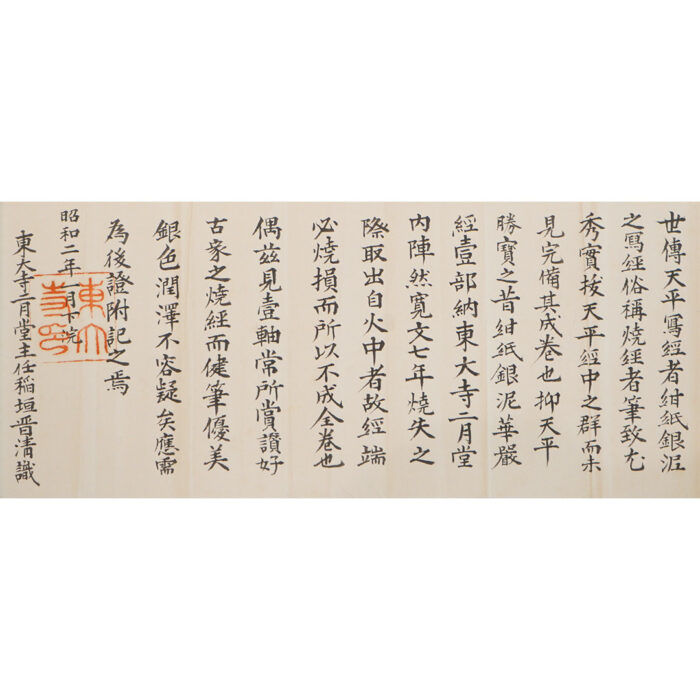 世傳天平寫經者紺紙銀泥
之寫經俗稱燒經者筆致尤
秀實拔天平經中之群而未
見完備其成卷也抑天平
勝寶之昔紺紙銀泥華嚴
經壹部納東大寺二月堂
內陣然寬文七年燒失之
際取出自火中者故經端
必燒損而所以不成全卷也
偶茲見壹軸常所賞讚好
古家之燒經而健筆優美
銀色潤澤不容疑矣應需
為後證附記之焉
昭和二年一月下浣
東大寺二月堂主任稲垣晋清識
東大寺印